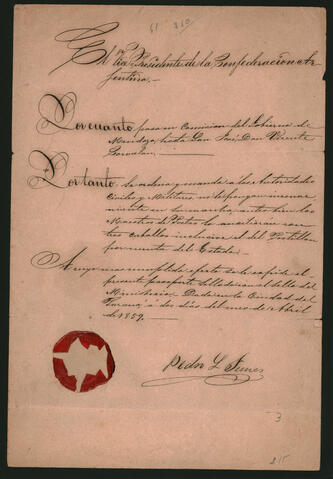 51 210
El Vice Presidente de la Confederacion Ar-
jentina.—
Por cuanto pasa en Comision del Gobierno de
Mendoza, hasta San José Don Vicente
Por tanto, se ordena y manda a las Autoridades
Civiles y Militares no le pongan incon-
niente en su marcha, antes bien los
Maestros de Postas le auxiliaran con
tres caballos inclusive el del Postillon
por cuenta del Estado.
A cuyo mas cumplido efecto se le expide el
presente pasaporte sellado con el sello del
Ministerio. Dado en la Ciudad del
Paraná a dos dias del mes de Abril
de 1859.
Pedro L Funes
3
215